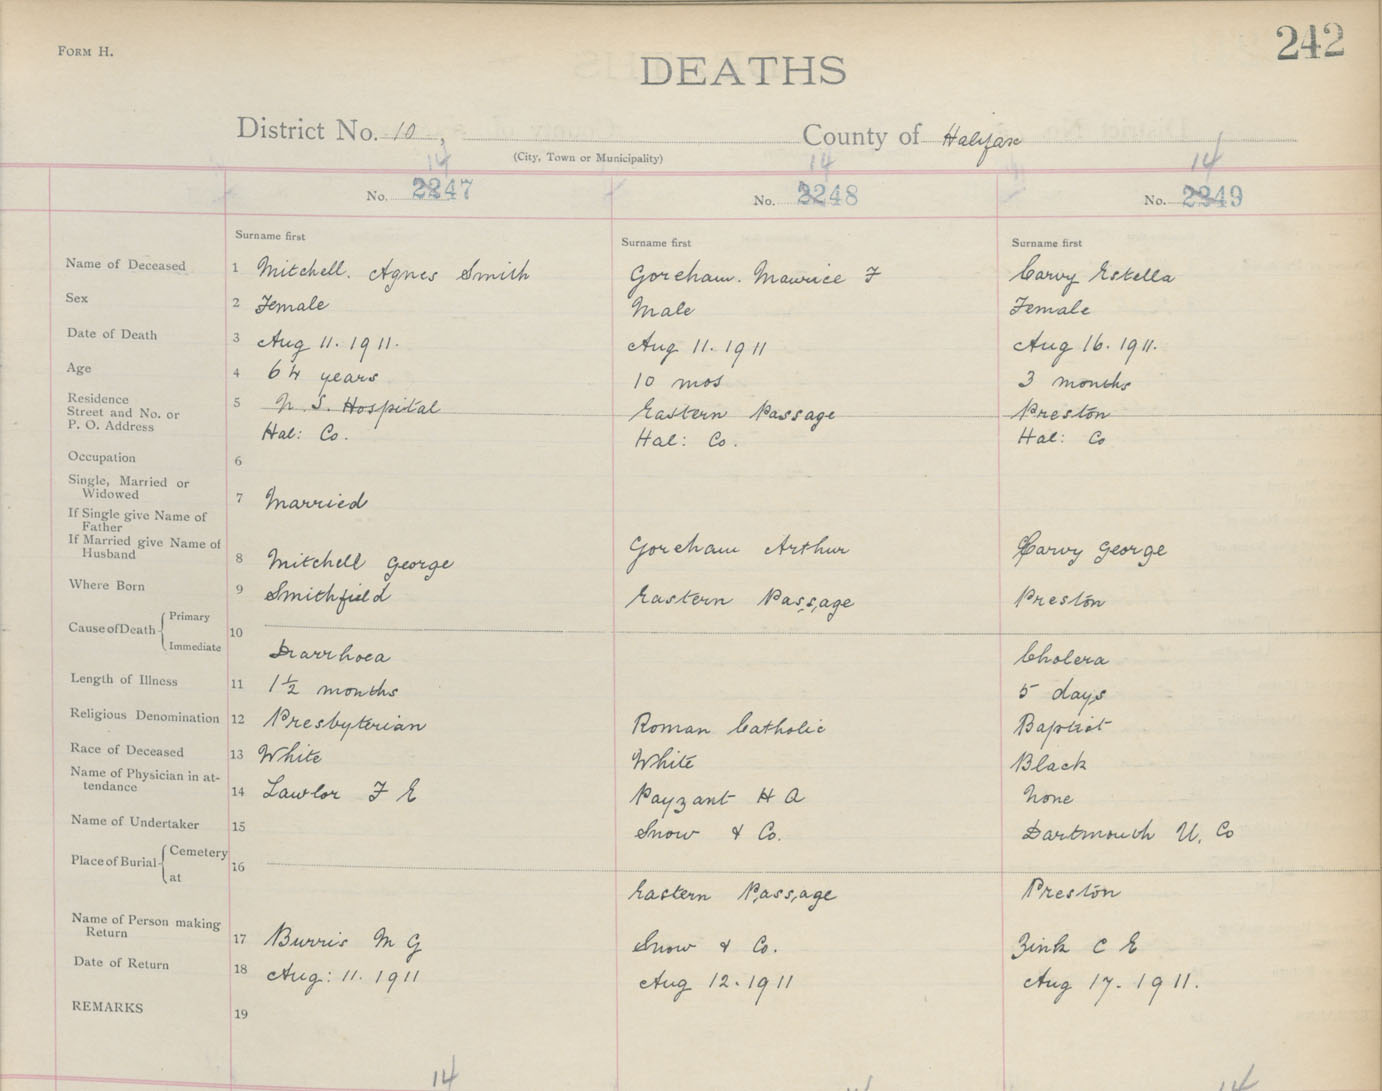 FORM H.
242
DEATHS
District No. 10, County of Halifax
(City, Town or Municipality)
14 14 14
No. 2247 No. 2248 No. 2249
Surname first Surname first Surname first
Name of Deceased 1 Mitchell. Agnes Smith Goreham. Maurice F Carvy Estella
Sex 2 Female Male Female
Date of Death 3 Aug 11. 1911. Aug 11. 1911 Aug 16. 1911.
Age 4 64 years 10 mos 3 months
Residence
Street and No. or 5 N. S. Hospital Eastern Passage Preston
P. O. Address Hal: Co. Hal: Co. Hal: Co
Occupation 6
Single, Married or
Widowed 7 Married
If Single give Name of
Father
If Married give Name of
Husband 8 Mitchell George Goreham Arthur Carvy George
Where Born 9 Smithfield Eastern Passage Preston
Cause of Death Primary 10
Immediate Diarrhoea Cholera
Length of Illness 11 1½ months 5 days
Religious Denomination 12 Presbyterian Roman Catholic Baptist
Race of Deceased 13 White White Black
Name of Physician in at-
tendance 14 Lawlor F E Payzant H A None
Name of Undertaker 15 Snow & Co. Dartmouth U. Co
Place of Burial Cemetery 16
at Eastern Passage Preston
Name of Person making
Return 17 Burris M G Snow & Co. Zink C E
Date of Return 18 Aug: 11. 1911 Aug 12. 1911 Aug 17. 1911.
REMARKS 19
14